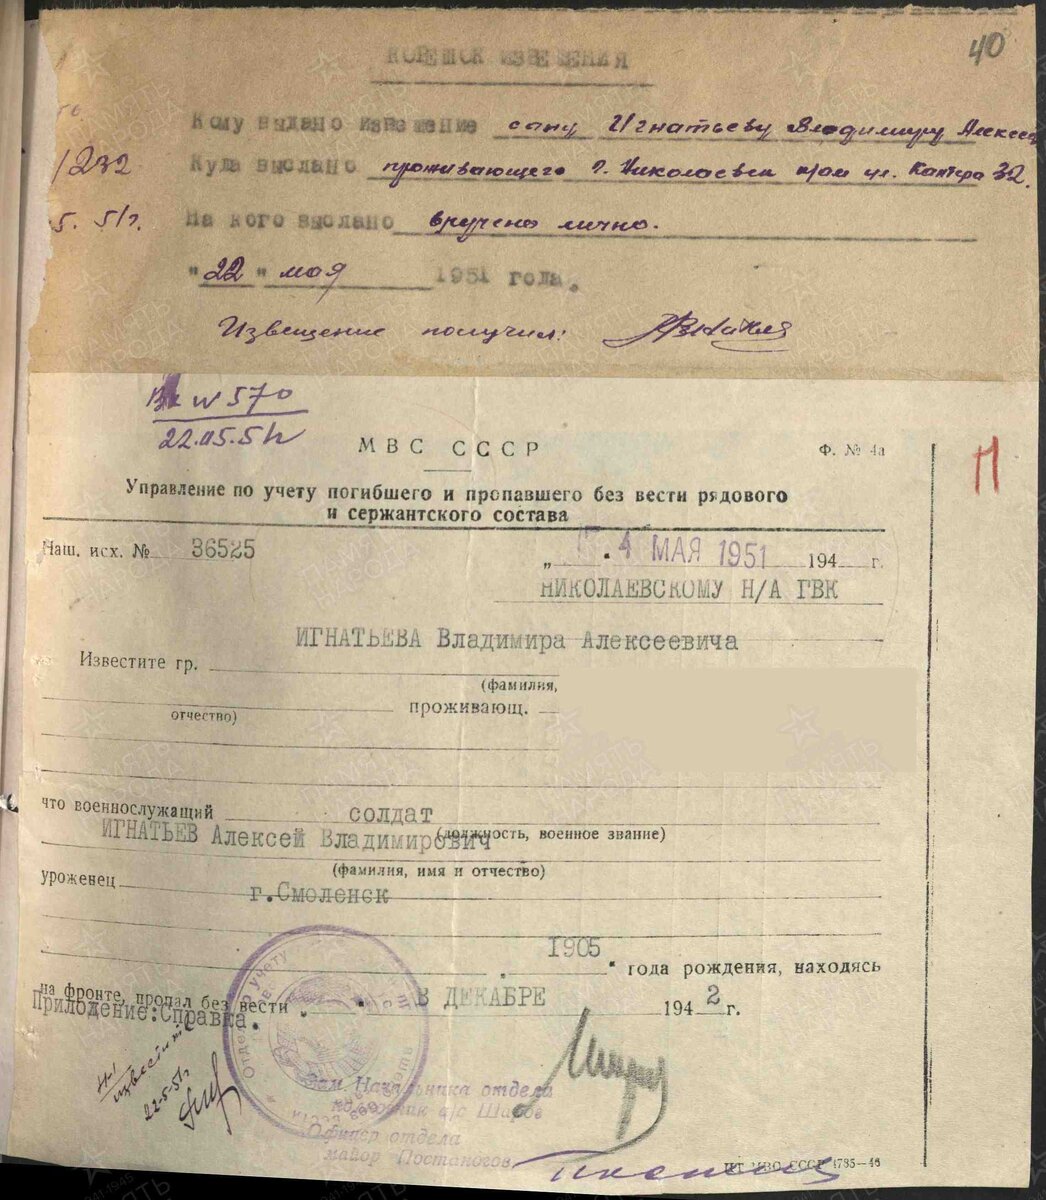 40
КОРЕШОК ИЗВЕЩЕНИЯ
Кому выдано извещение сану Игнатьеву Владимиру Алексе
/232
Куда выслано проживающего г. Николаевск н/ам ул. Кантера 32.
5. 51г.
На кого выслано вручено лично.
"22" мая 1951 года.
Извещение получил:
Вх N 570
22.05.51г
МВС СССР
Ф. № 4а
П
Управление по учету погибшего и пропавшего без вести рядового
и сержантского состава
Наш. исх. № 36525
„ 4 МАЯ 1951 194 г.
НИКОЛАЕВСКОМУ Н/А ГВК
ИГНАТЬЕВА Владимира Алексеевича
Известите гр.
(фамилия,
отчество)
проживающ.
что военнослужащий солдат
ИГНАТЬЕВ Алексей Владимирович
(должность, военное звание)
(фамилия, имя и отчество)
уроженец
г.Смоленск
1905
года рождения, находясь
на фронте, пропал без вести В ДЕКАБРЕ 1942 г.
Прилодение:Справка.
извести
22-5-51г
Отдел по учету
Зам. Начальника отдела
полковник а/с Шаров
Офицер отдела
майор Постаногов
ЦТ МВО СССР 4735—46